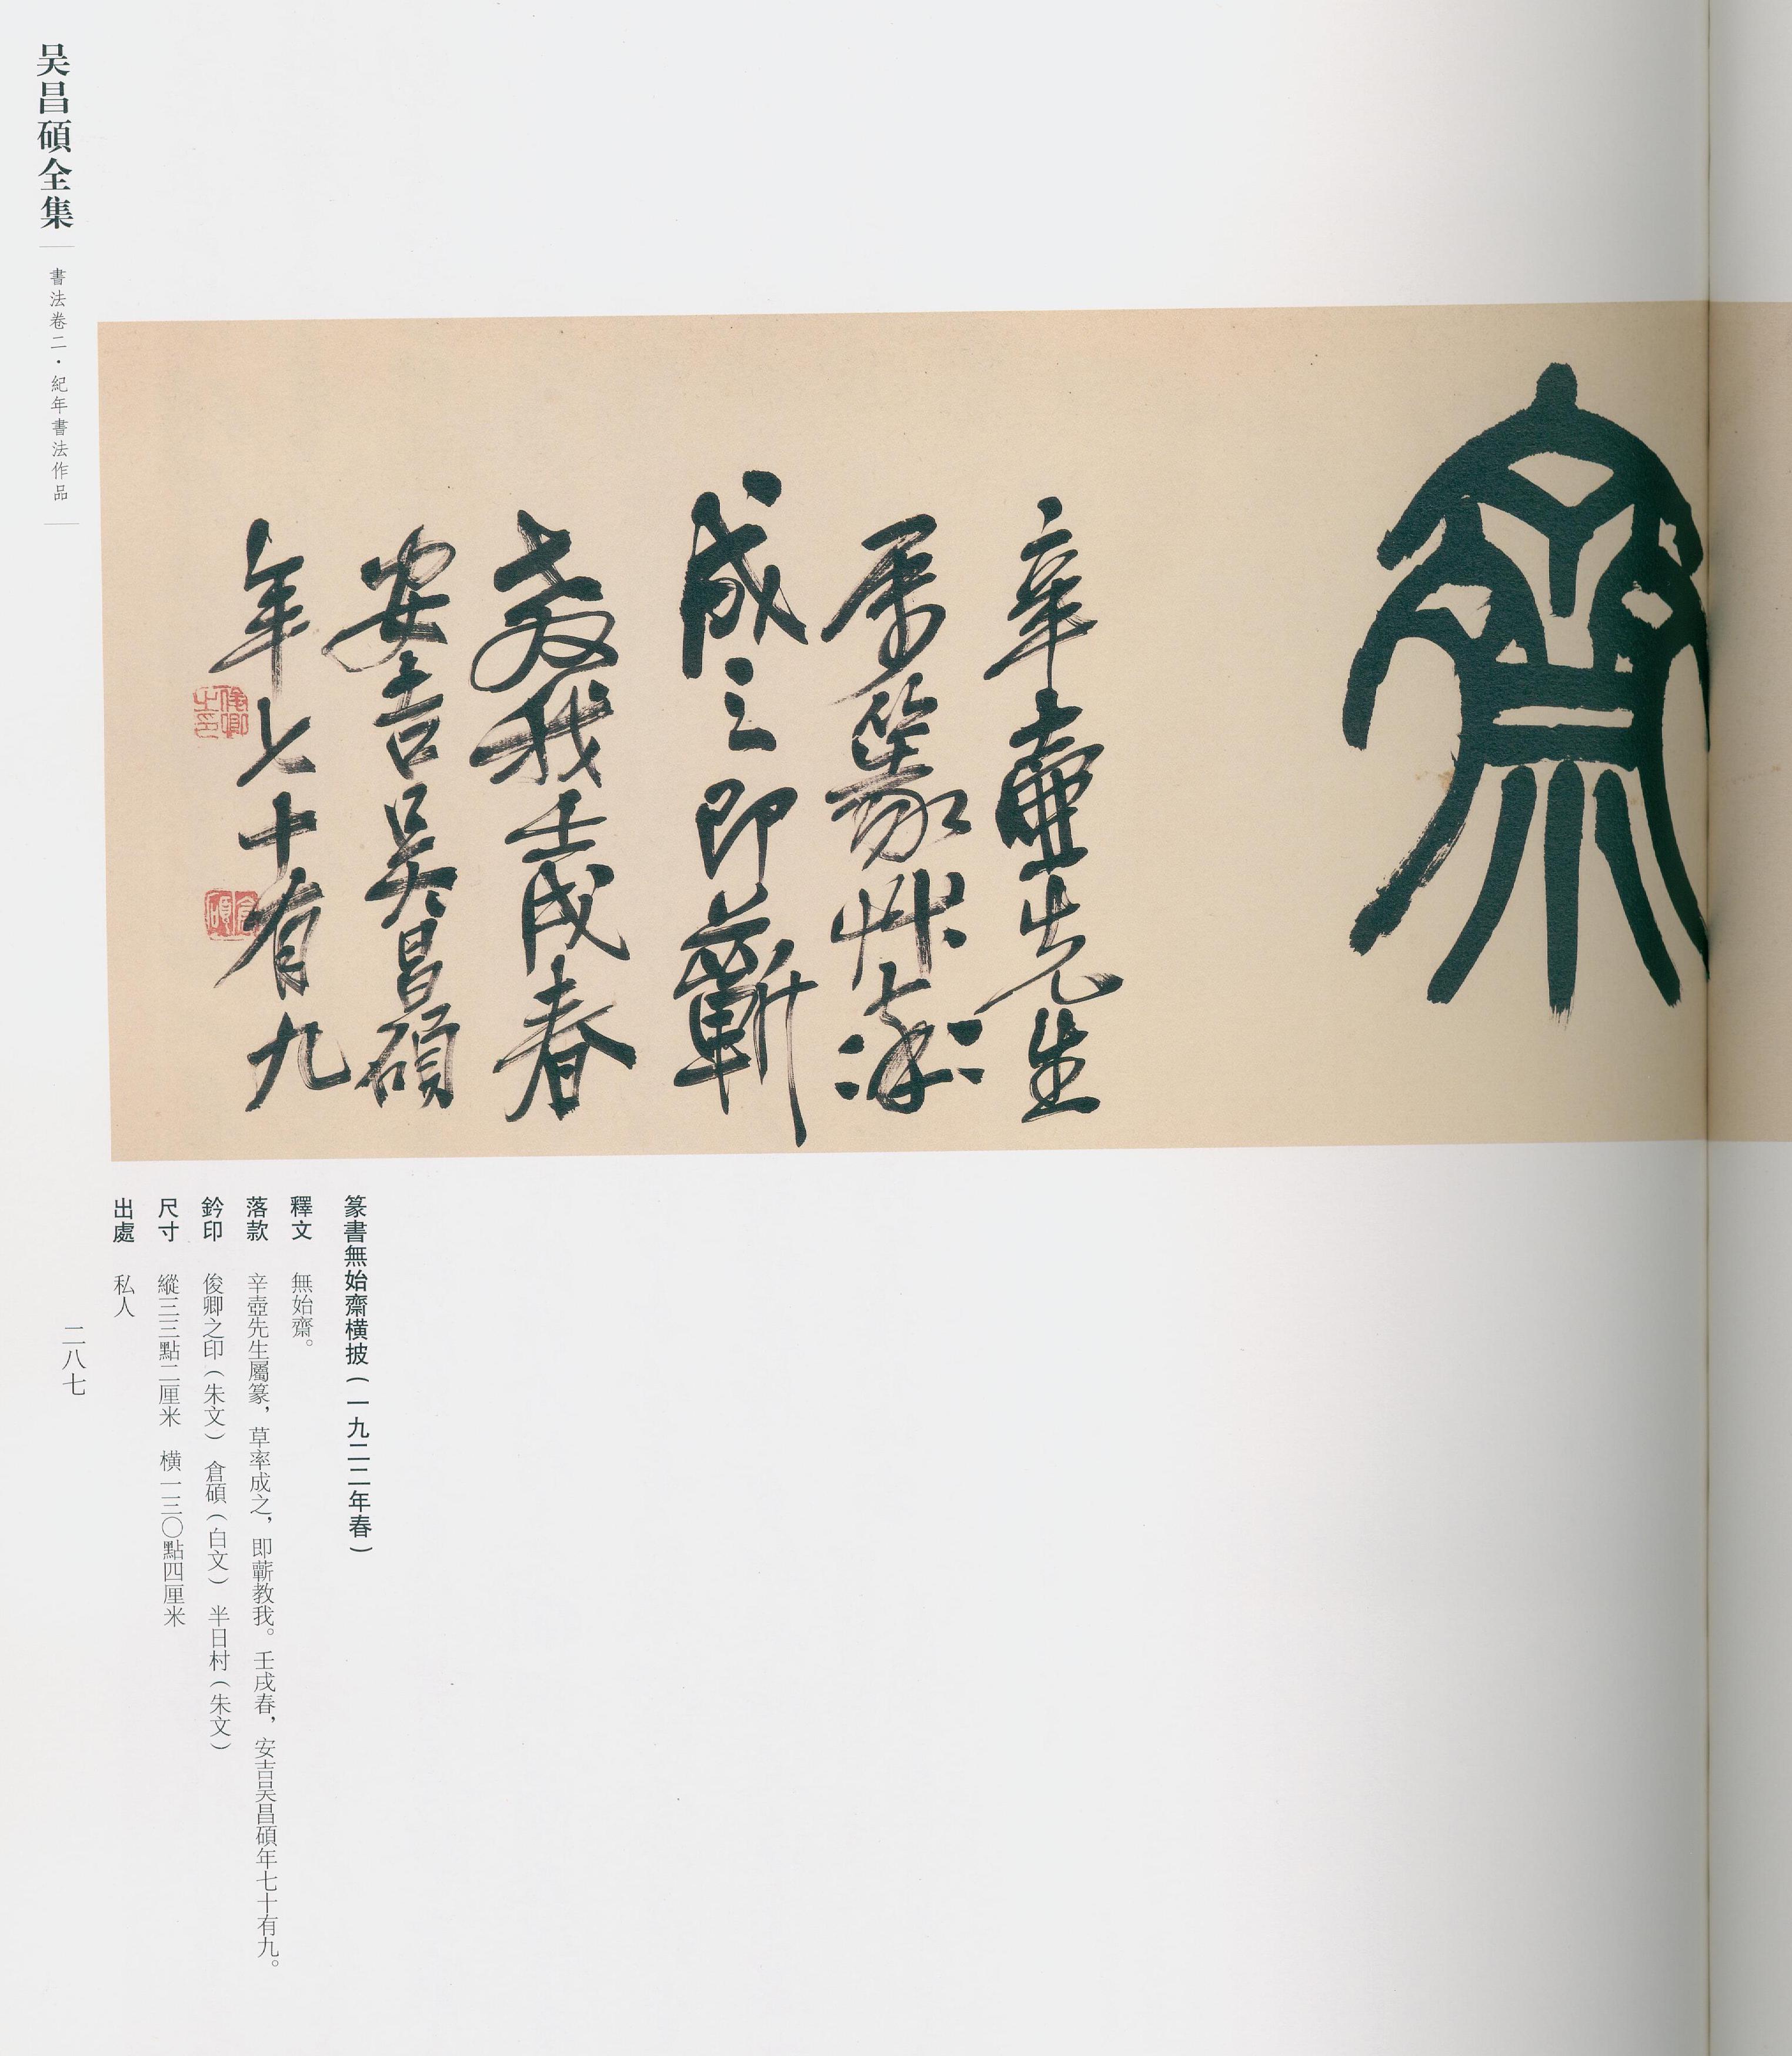 齋
辛壷先生
屬篆艸率
成之即蘄
教我壬戌春
安吉吴昌碩
年七十有九
俊卿之印
倉碩
篆書無始齋横披（一九二二年春）
釋文　無始齋。
落款　辛壺先生屬篆，草率成之，即蘄教我。壬戌春，安吉吴昌碩年七十有九。
鈐印　俊卿之印（朱文）　倉碩（白文）　半日村（朱文）
尺寸　縱三三點二厘米　横一三〇點四厘米
出處　私人
二八七
吴昌碩全集
書法卷二·紀年書法作品